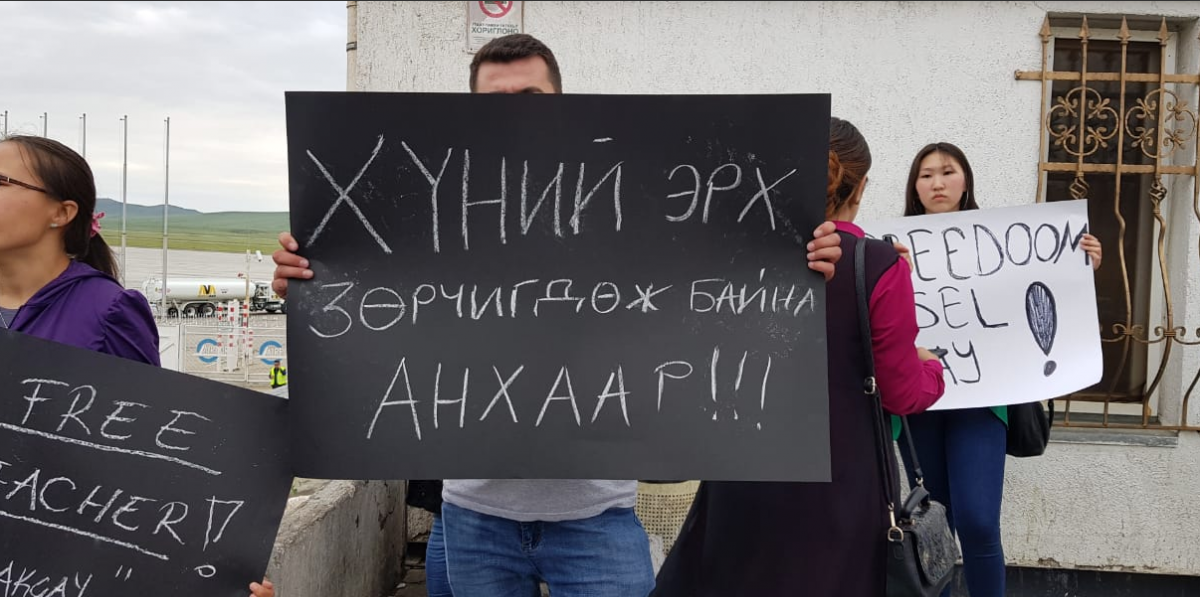 ХОРИГЛОНО
ХҮНИЙ ЭРХ
ЗӨРЧИГДӨЖ БАЙНА
АНХААР!!!
FREE
TEACHER!
АКСАУ"
FREEDOOM
SEL
AY
!